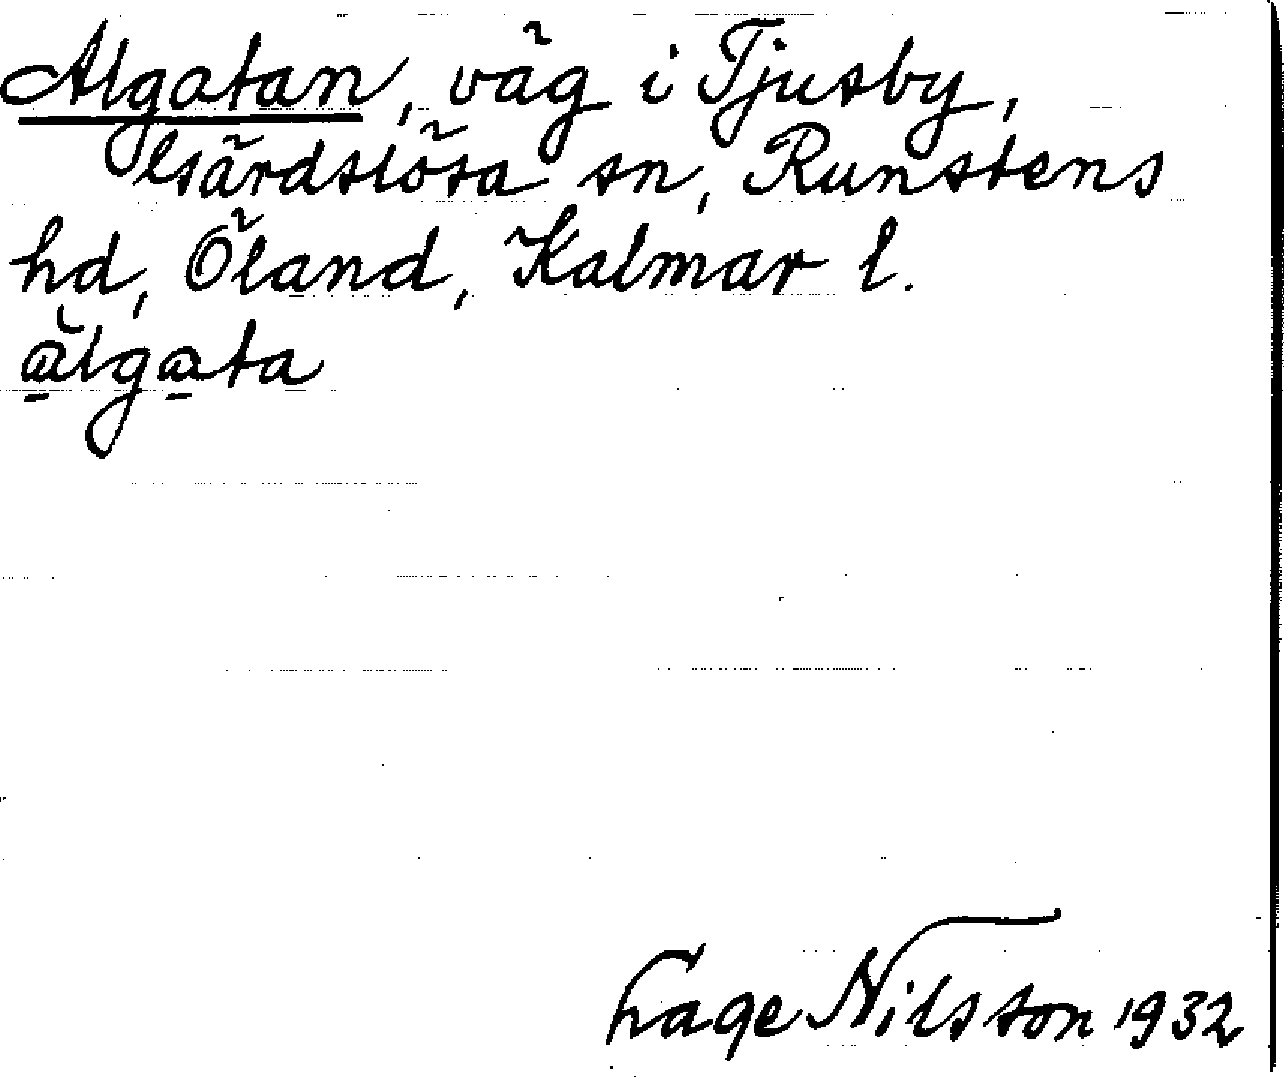 Algatan, väg i Tjusby,
Gärdslösa sn, Runstens
hd, Öland, Kalmar l.
ă̱lga̱ta
Nilsson 1932